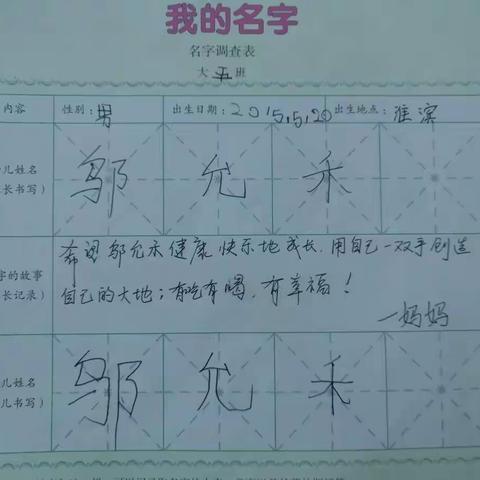 我的名字
名字调查表
大五班
内容 性别:男 出生日期:2015,5,20 出生地点:淮滨
儿姓名
邬 允 禾
长书写)
希望邬允禾健康快乐地成长,用自己一双手创造
字的故事
自己的大地;有吃有喝,有幸福!
长记录)
一妈妈
儿姓名
邬 允 禾
儿书写)